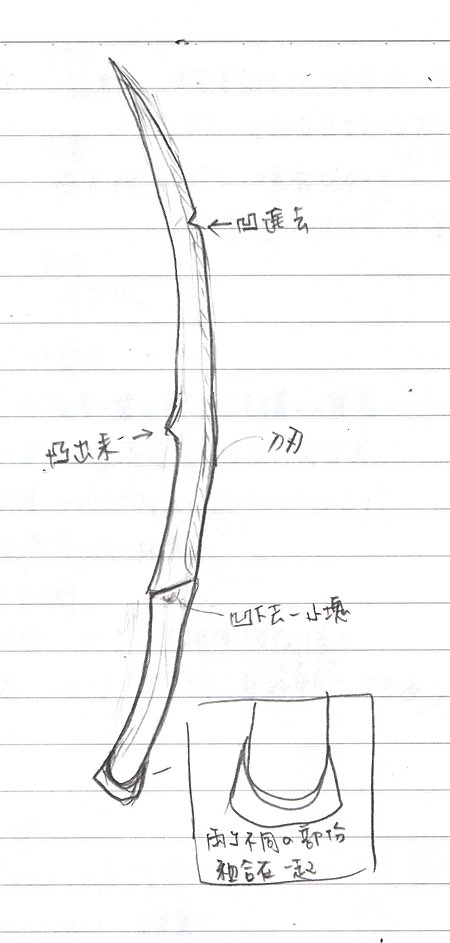 ←凹進去
凸出來→
刀刃
凹下去一小塊
兩个不同の部份
組合在一起